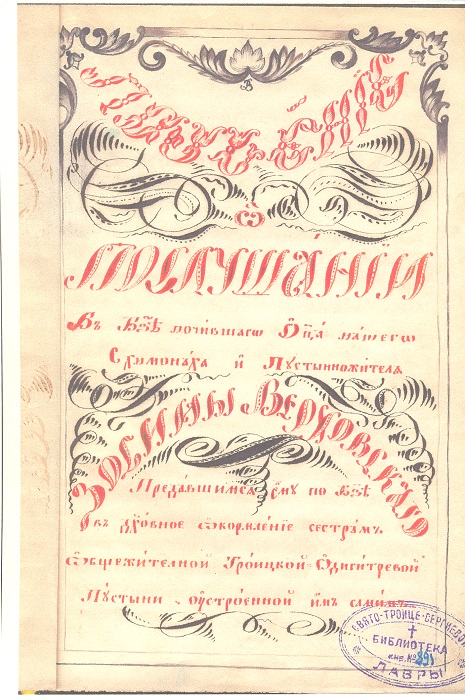 Поꙋче́нїе
ѡ҆
ПОСЛУША́НЇИ
Въ Бз҃ѣ почи́вшагѡ Ѻ҆ц҃а на́шегѡ
Схимона́ха и҆ Пꙋстынножи́телѧ
ЗОСИ́МЫ ВЕРХО́ВСКАГО
Преда́вшимсѧ є҆мꙋ̀ по Бз҃ѣ
въ дꙋхо́вное ѡ҆кормле́нїе се́страмъ.
Ѻ҆бщежи́тельной Тро́ицкой-Ѻ҆диги́тревой
Пꙋ́стыни ᲂу҆стро́енной и҆́мъ сами́мъ.
СВЯТО-ТРОИЦЕ-СЕРГИЕВОЙ
БИБЛИОТЕКА
инв. №
ЛАВРЫ